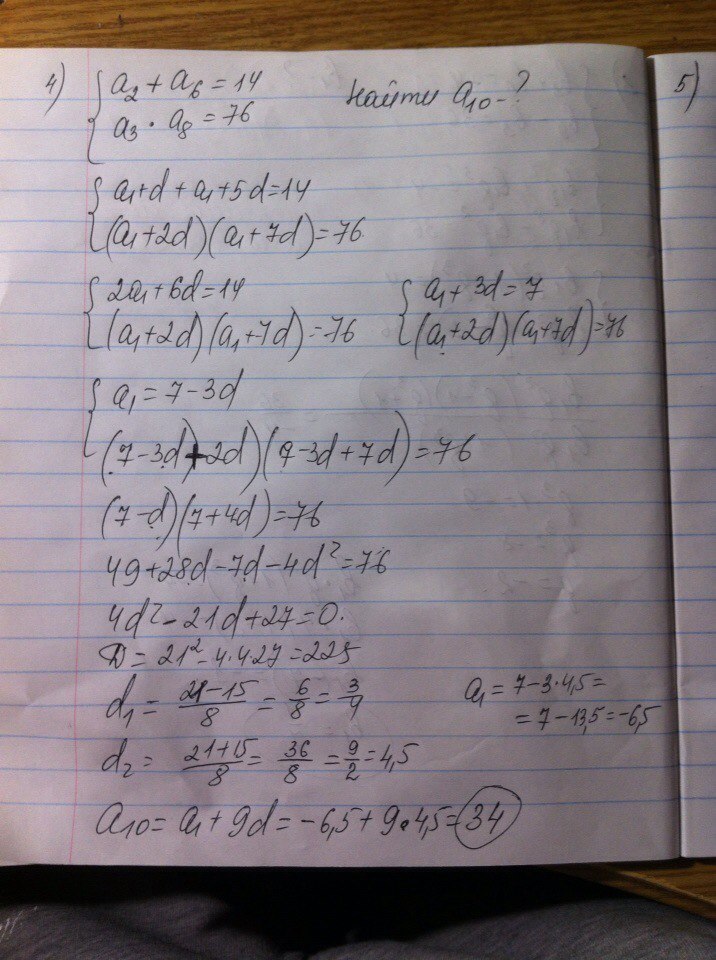 4) { a₂ + a₆ = 14 Найти a₁₀ - ? 5)
a₃ · a₈ = 76
{ a₁+d + a₁+5d=14
(a₁+2d)(a₁+7d)=76
{ 2a₁+6d=14 { a₁+ 3d=7
(a₁+2d)(a₁+7d)=76 (a₁+2d)(a₁+7d)=76
{ a₁ = 7-3d
(7-3d)+2d)(7-3d+7d)=76
(7-d)(7+4d)=76
49+28d-7d-4d²=76
4d²-21d+27=0.
D=21²-4·4·27=225
d₁ = (21-15)/8 = 6/8 = 3/4 a₁ = 7-3·4,5=
= 7-13,5=-6,5
d₂ = (21+15)/8 = 36/8 = 9/2 = 4,5
a₁₀ = a₁ + 9d = -6,5+9·4,5=34